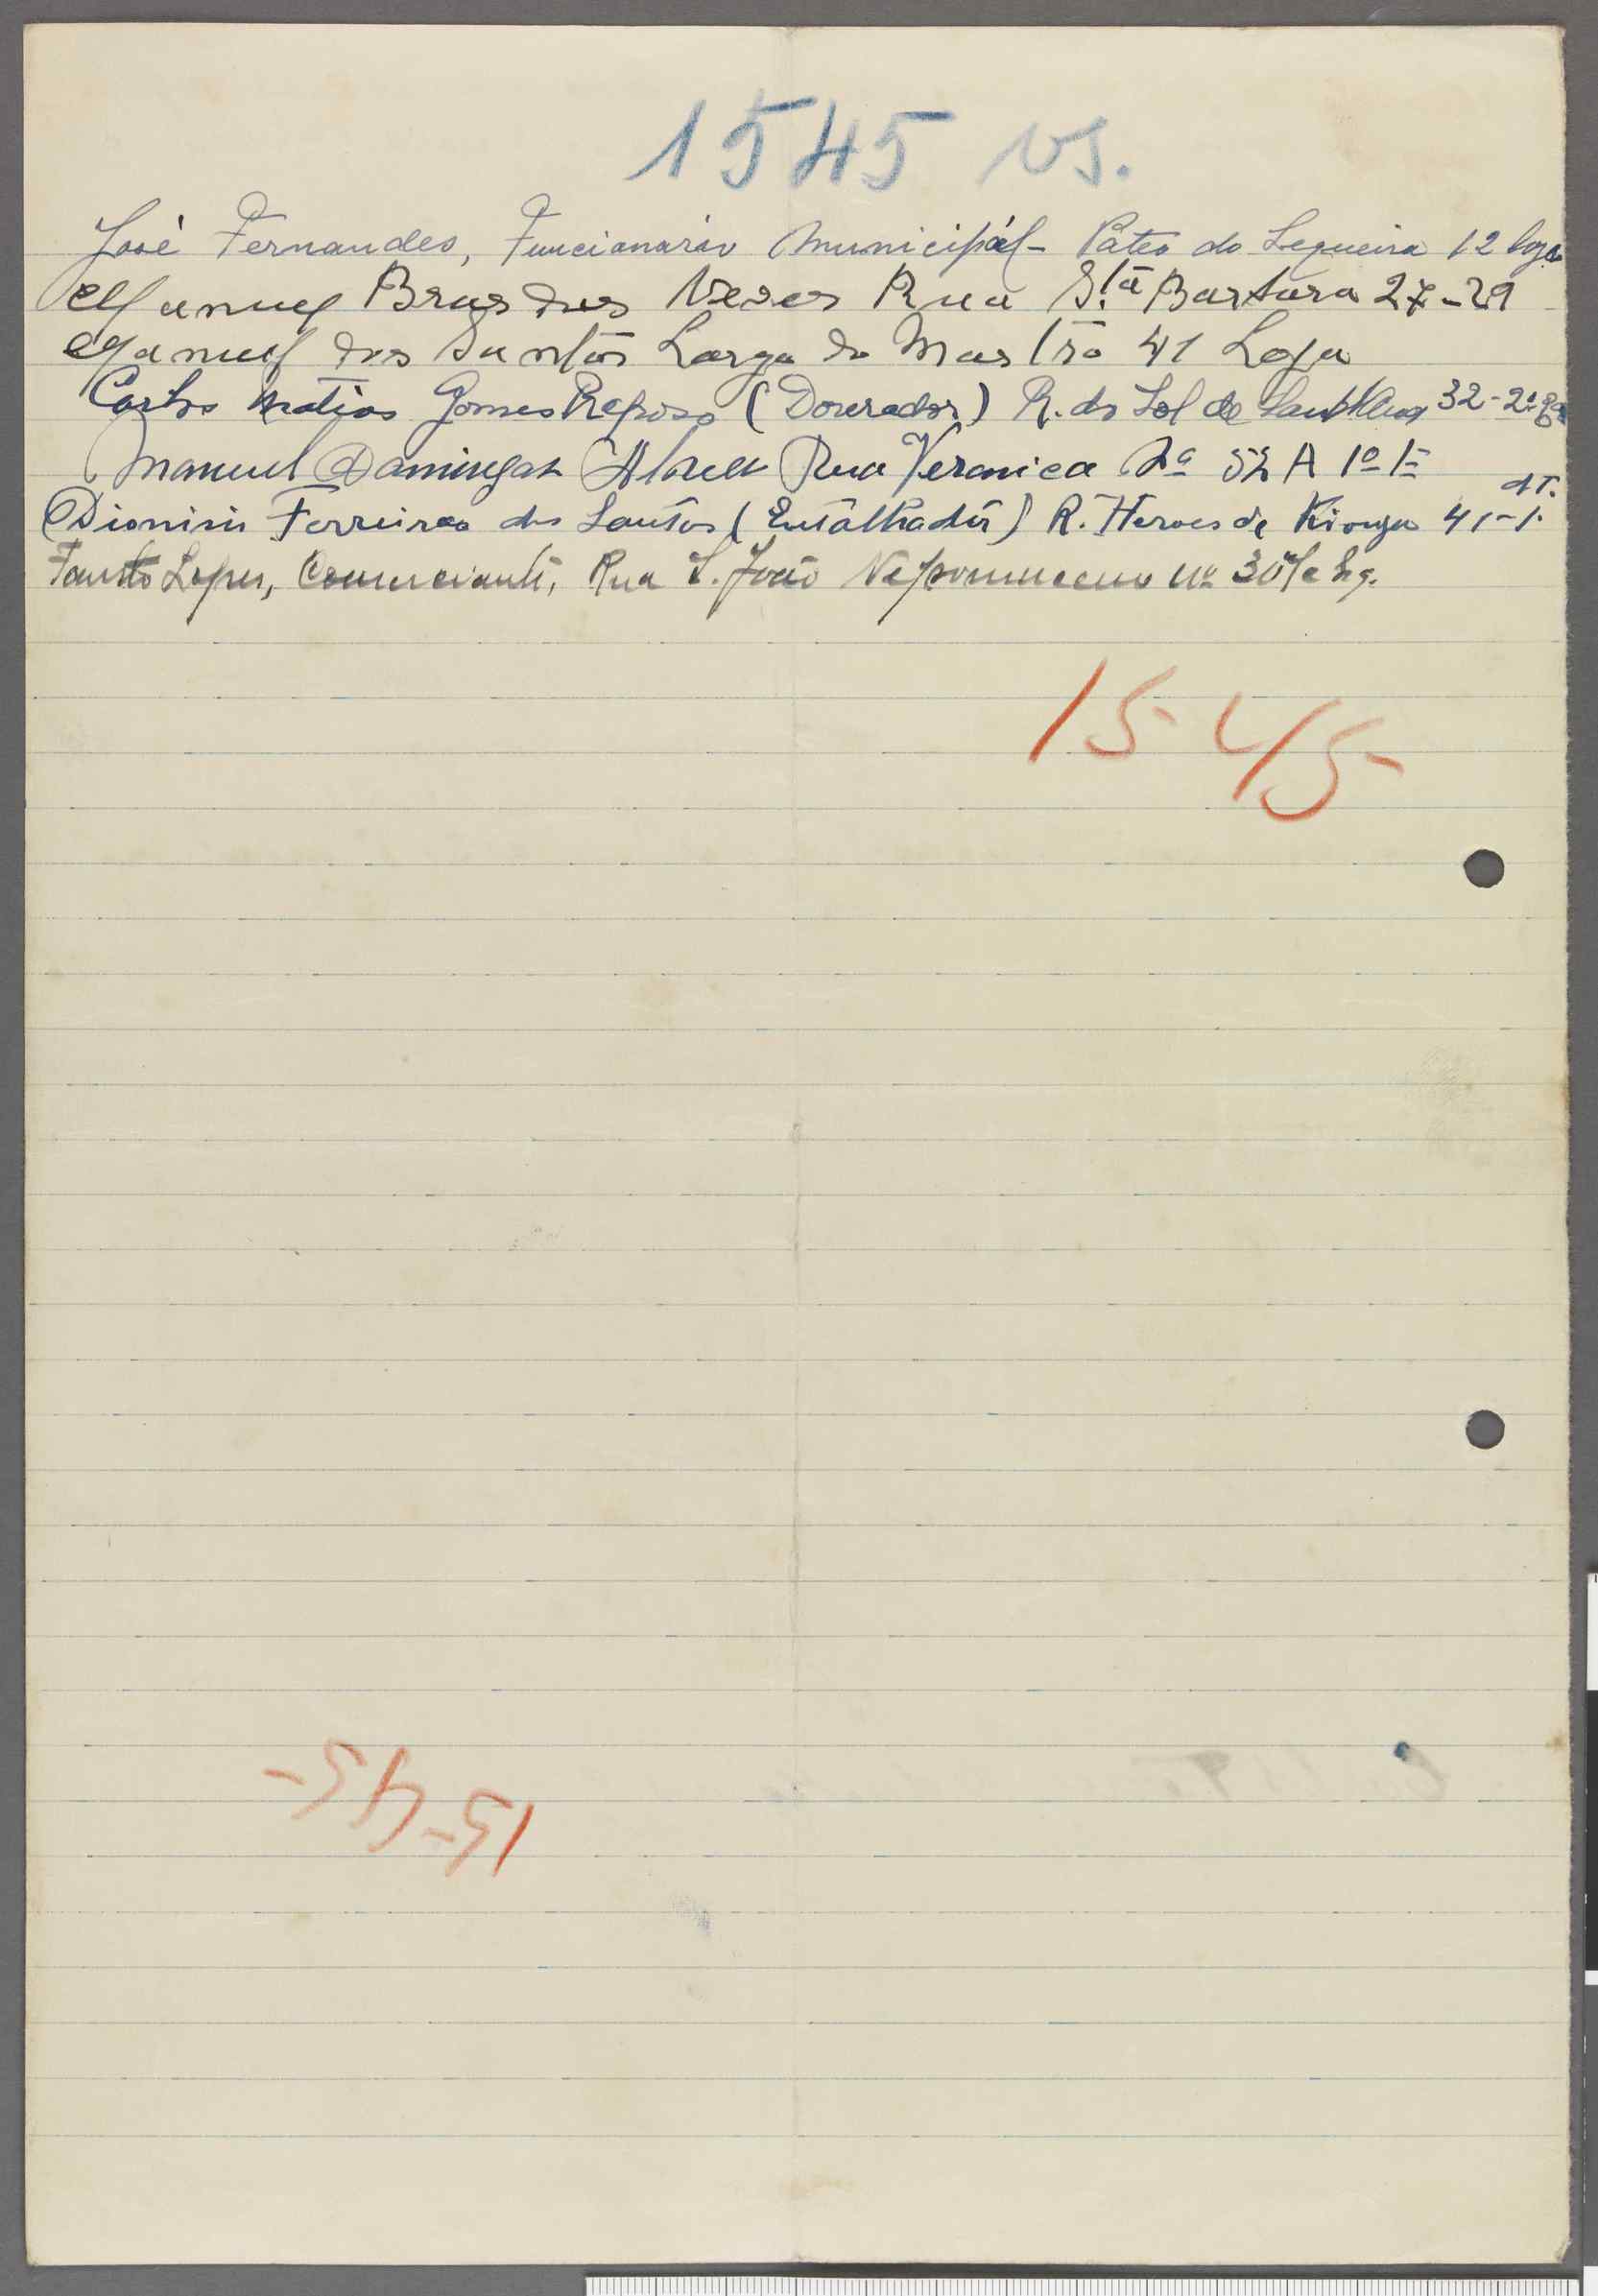 1545 vs.
José Fernandes, Funcionaráo Municipál - Pateo do Sequeira 12 loja
Manuel Bras dos Neves Rua S.ta Barbara 27-29
Manuel dos Santos Largo do Mastro 41 Loja
Carlos Matias Gomes Reposo (Dourador) R. do Sol de 32-2º
Manuel Domingos Rua Veronica Nº 52 A 1º
Dionisio Ferreira dos Santos (Entalhador) R. Heroes de Kionga 41-1. dt.
Fausto Lopes, Comerciante, Rua S. João Nepomuceno nº 30 Esq.
1545
1545